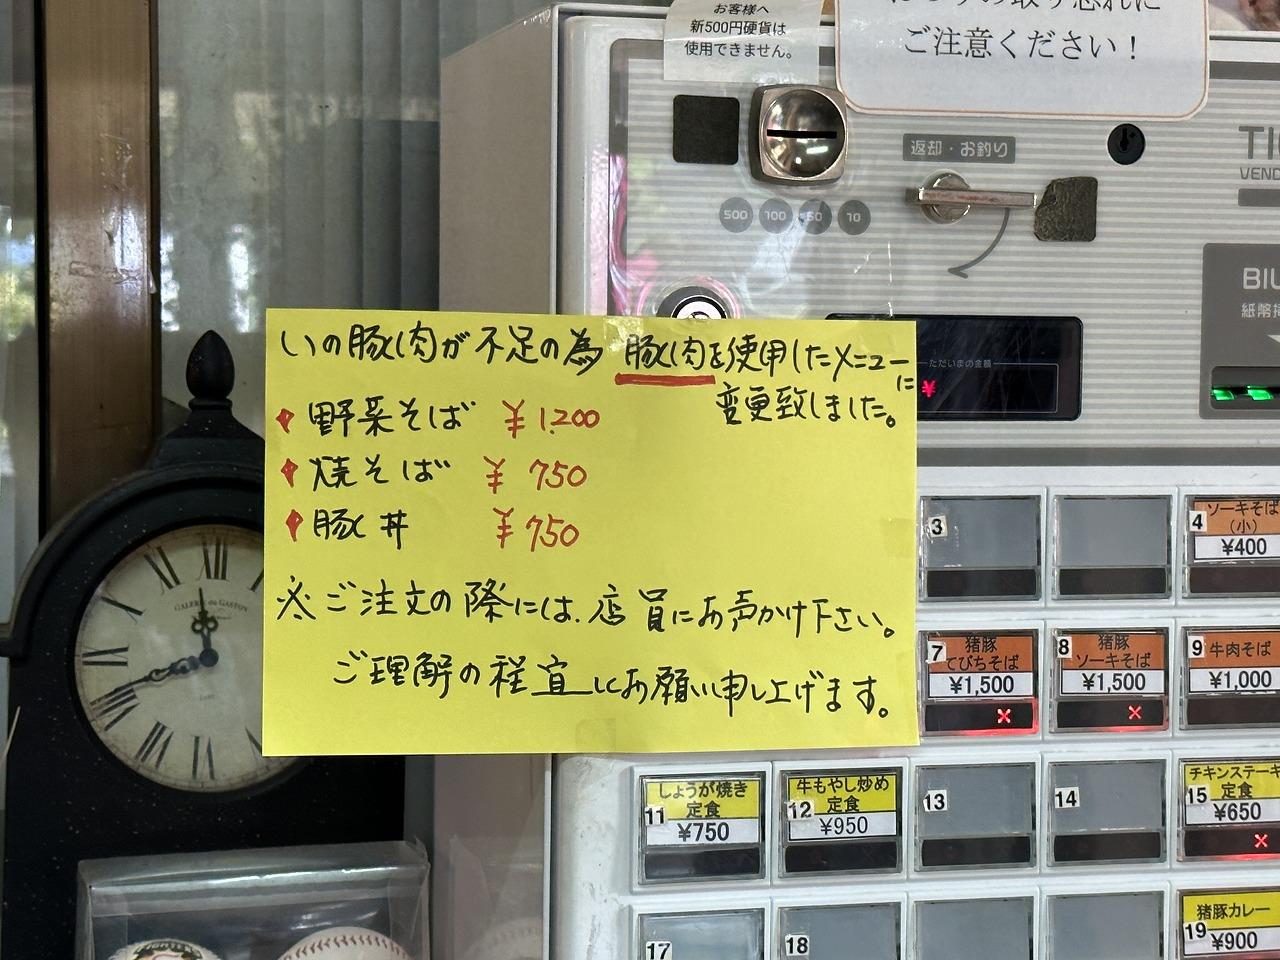 お客様へ
新500円硬貨は
使用できません。
ご注意ください！
返却・お釣り
500 100 50 10
VEND
紙幣挿
ただいまの金額
¥
いの豚肉が不足の為 豚肉を使用したメニューに
変更致しました。
野菜そば ¥1,200
焼そば ¥750
豚丼 ¥750
※ご注文の際には、店員にお声かけ下さい。
ご理解の程宜しくお願い申し上げます。
3
4 ソーキそば
(小)
¥400
7 猪豚
てびちそば
¥1,500
8 猪豚
ソーキそば
¥1,500
9 牛肉そば
¥1,000
11 しょうが焼き
定食
¥750
12 牛もやし炒め
定食
¥950
13
14
15 チキンステーキ
定食
¥650
17
18
19 猪豚カレー
¥900